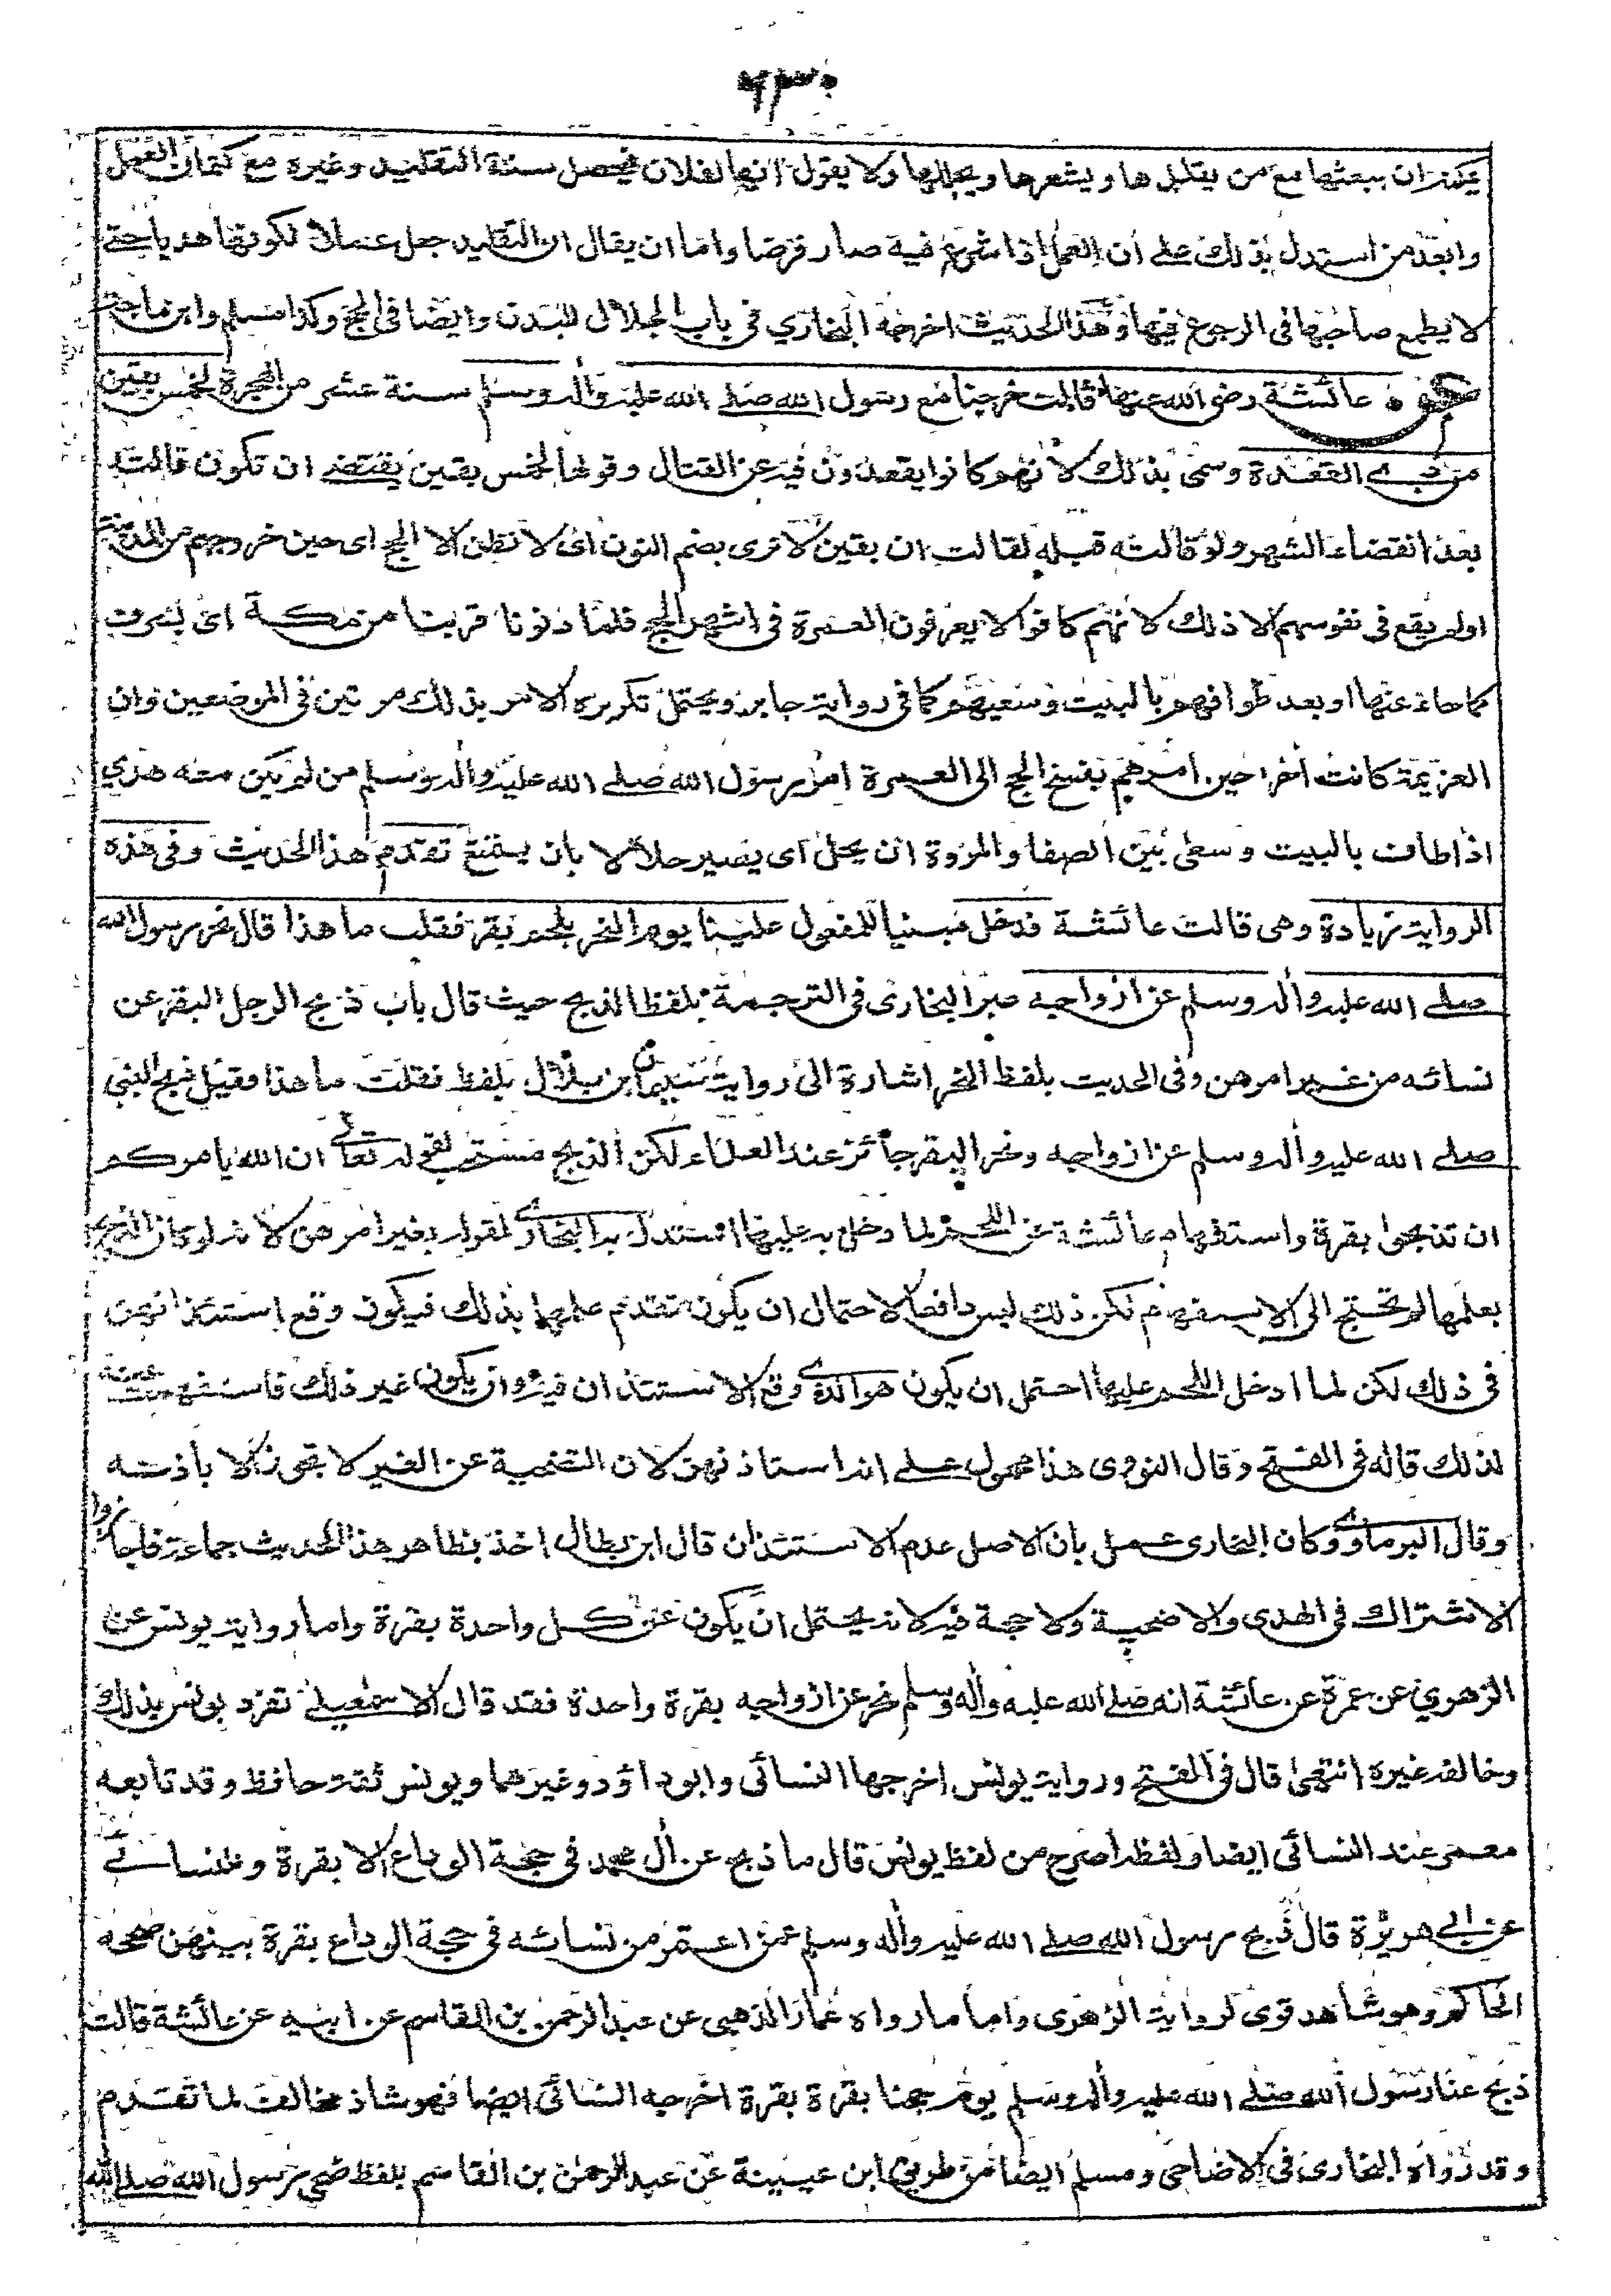 ٦٣٠
يمكنه ان يبعثها مع من يقلدها ويشعرها ويجللها ولا يقول انها لفلان فيحصل سنة التقليد وغيره مع كتمان العمل
وابعد من استدل بذلك على ان العمل اذا شرع فيه صار فرضا واما ان يقال ان التقليد جعل علما لكونها هديا حتى
لا يطمع صاحبها فى الرجوع فيها وهذا الحديث اخرجه البخاري فى باب الجلال للبدن وايضا فى الحج وكذا مسلم وابن ماجة
عن عائشة رضى الله عنها قالت خرجنا مع رسول الله صلى الله عليه واٰله وسلم سنة عشر من الهجرة لخمس بقين
من ذى القعدة وسمى بذلك لانهم كانوا يقعدون فيه عن القتال وقولها لخمس بقين يقتضى ان تكون قالته
بعد انقضاء الشهر ولو قالته قبله لقالت ان بقين لا نرى بضم النون اى لا نظن الا الحج اى حين خروجهم من المدينة
اولم يقع فى نفوسهم الا ذلك لانهم كانوا لا يعرفون العمرة فى اشهر الحج فلما دنونا قربنا من مكة اى بسرف
كما جاء عنها او بعد طوافهم بالبيت وسعيهم كما فى رواية جابر ويحتمل تكريره الامر بذلك مرتين فى الموضعين وان
العزيمة كانت اٰخرا حين امرهم بفسخ الحج الى العمرة امر رسول الله صلى الله عليه واٰله وسلم من لم يكن معه هدي
اذا طاف بالبيت وسعى بين الصفا والمروة ان يحل اى يصير حلالا بان يتمتع تقدم هذا الحديث وفى هذه
الرواية زيادة وهى قالت عائشة فدخل مبنيا للمفعول علينا يوم النحر بلحم بقر فقلت ما هذا قال نحر رسول الله
صلى الله عليه واٰله وسلم عن ازواجه عبر البخارى فى الترجمة بلفظ الذبح حيث قال باب ذبح الرجل البقر عن
نسائه من غير امرهن وفى الحديث بلفظ النحر اشارة الى رواية سليمان بن بلال بلفظ فقلت ما هذا فقيل ذبح النبى
صلى الله عليه واٰله وسلم عن ازواجه ونحر البقر جائز عند العلماء لكن الذبح مستحب لقوله تعالى ان الله يامركم
ان تذبحوا بقرة واستفهام عائشة عن اللحم لما دخل به عليها استدل به البخارى لقوله بغير امرهن لانه لو كان الذبح
بعلمها لم تحتج الى الاستفهام لكن ذلك ليس دافعا لاحتمال ان يكون تقدم علمها بذلك فيكون وقع استئذانهن
فى ذلك لكن لما ادخل اللحم عليها احتمل ان يكون هو الذى وقع الاستئذان فيه وان يكون غير ذلك فاستفهمت عنه
لذلك قاله فى الفتح وقال النووى هذا محمول على انه استاذنهن لان التضحية عن الغير لا تجوز الا باذنه
وقال البرماوى وكان البخارى عمل بان الاصل عدم الاستئذان قال ابن بطال اخذ بظاهر هذا الحديث جماعة فاجازوا
الاشتراك فى الهدى والاضحية ولا حجة فيه لانه يحتمل ان يكون عن كل واحدة بقرة واما رواية يونس عن
الزهري عن عمرة عن عائشة انه صلى الله عليه واٰله وسلم نحر عن ازواجه بقرة واحدة فقد قال الاسمعيلى تفرد يونس بذلك
وخالفه غيره انتهى قال فى الفتح ورواية يونس اخرجها النسائى وابو داؤد وغيرهما ويونس ثقة حافظ وقد تابعه
معمر عند النسائى ايضا ولفظه اصرح من لفظ يونس قال ما ذبح عن اٰل محمد فى حجة الوداع الا بقرة وللنسائى
عن ابى هريرة قال ذبح رسول الله صلى الله عليه واٰله وسلم عمن اعتمر من نسائه فى حجة الوداع بقرة بينهن صححه
الحاكم وهو شاهد قوى لرواية الزهرى واما ما رواه عمار الذهبى عن عبد الرحمن بن القاسم عن ابيه عن عائشة قالت
ذبح عنا رسول الله صلى الله عليه واٰله وسلم يوم حجنا بقرة بقرة اخرجه النسائى ايضا فهو شاذ مخالف لما تقدم
وقد رواه البخارى فى الاضاحى ومسلم ايضا من طريق ابن عيينة عن عبد الرحمن بن القاسم بلفظ ضحى رسول الله صلى الله